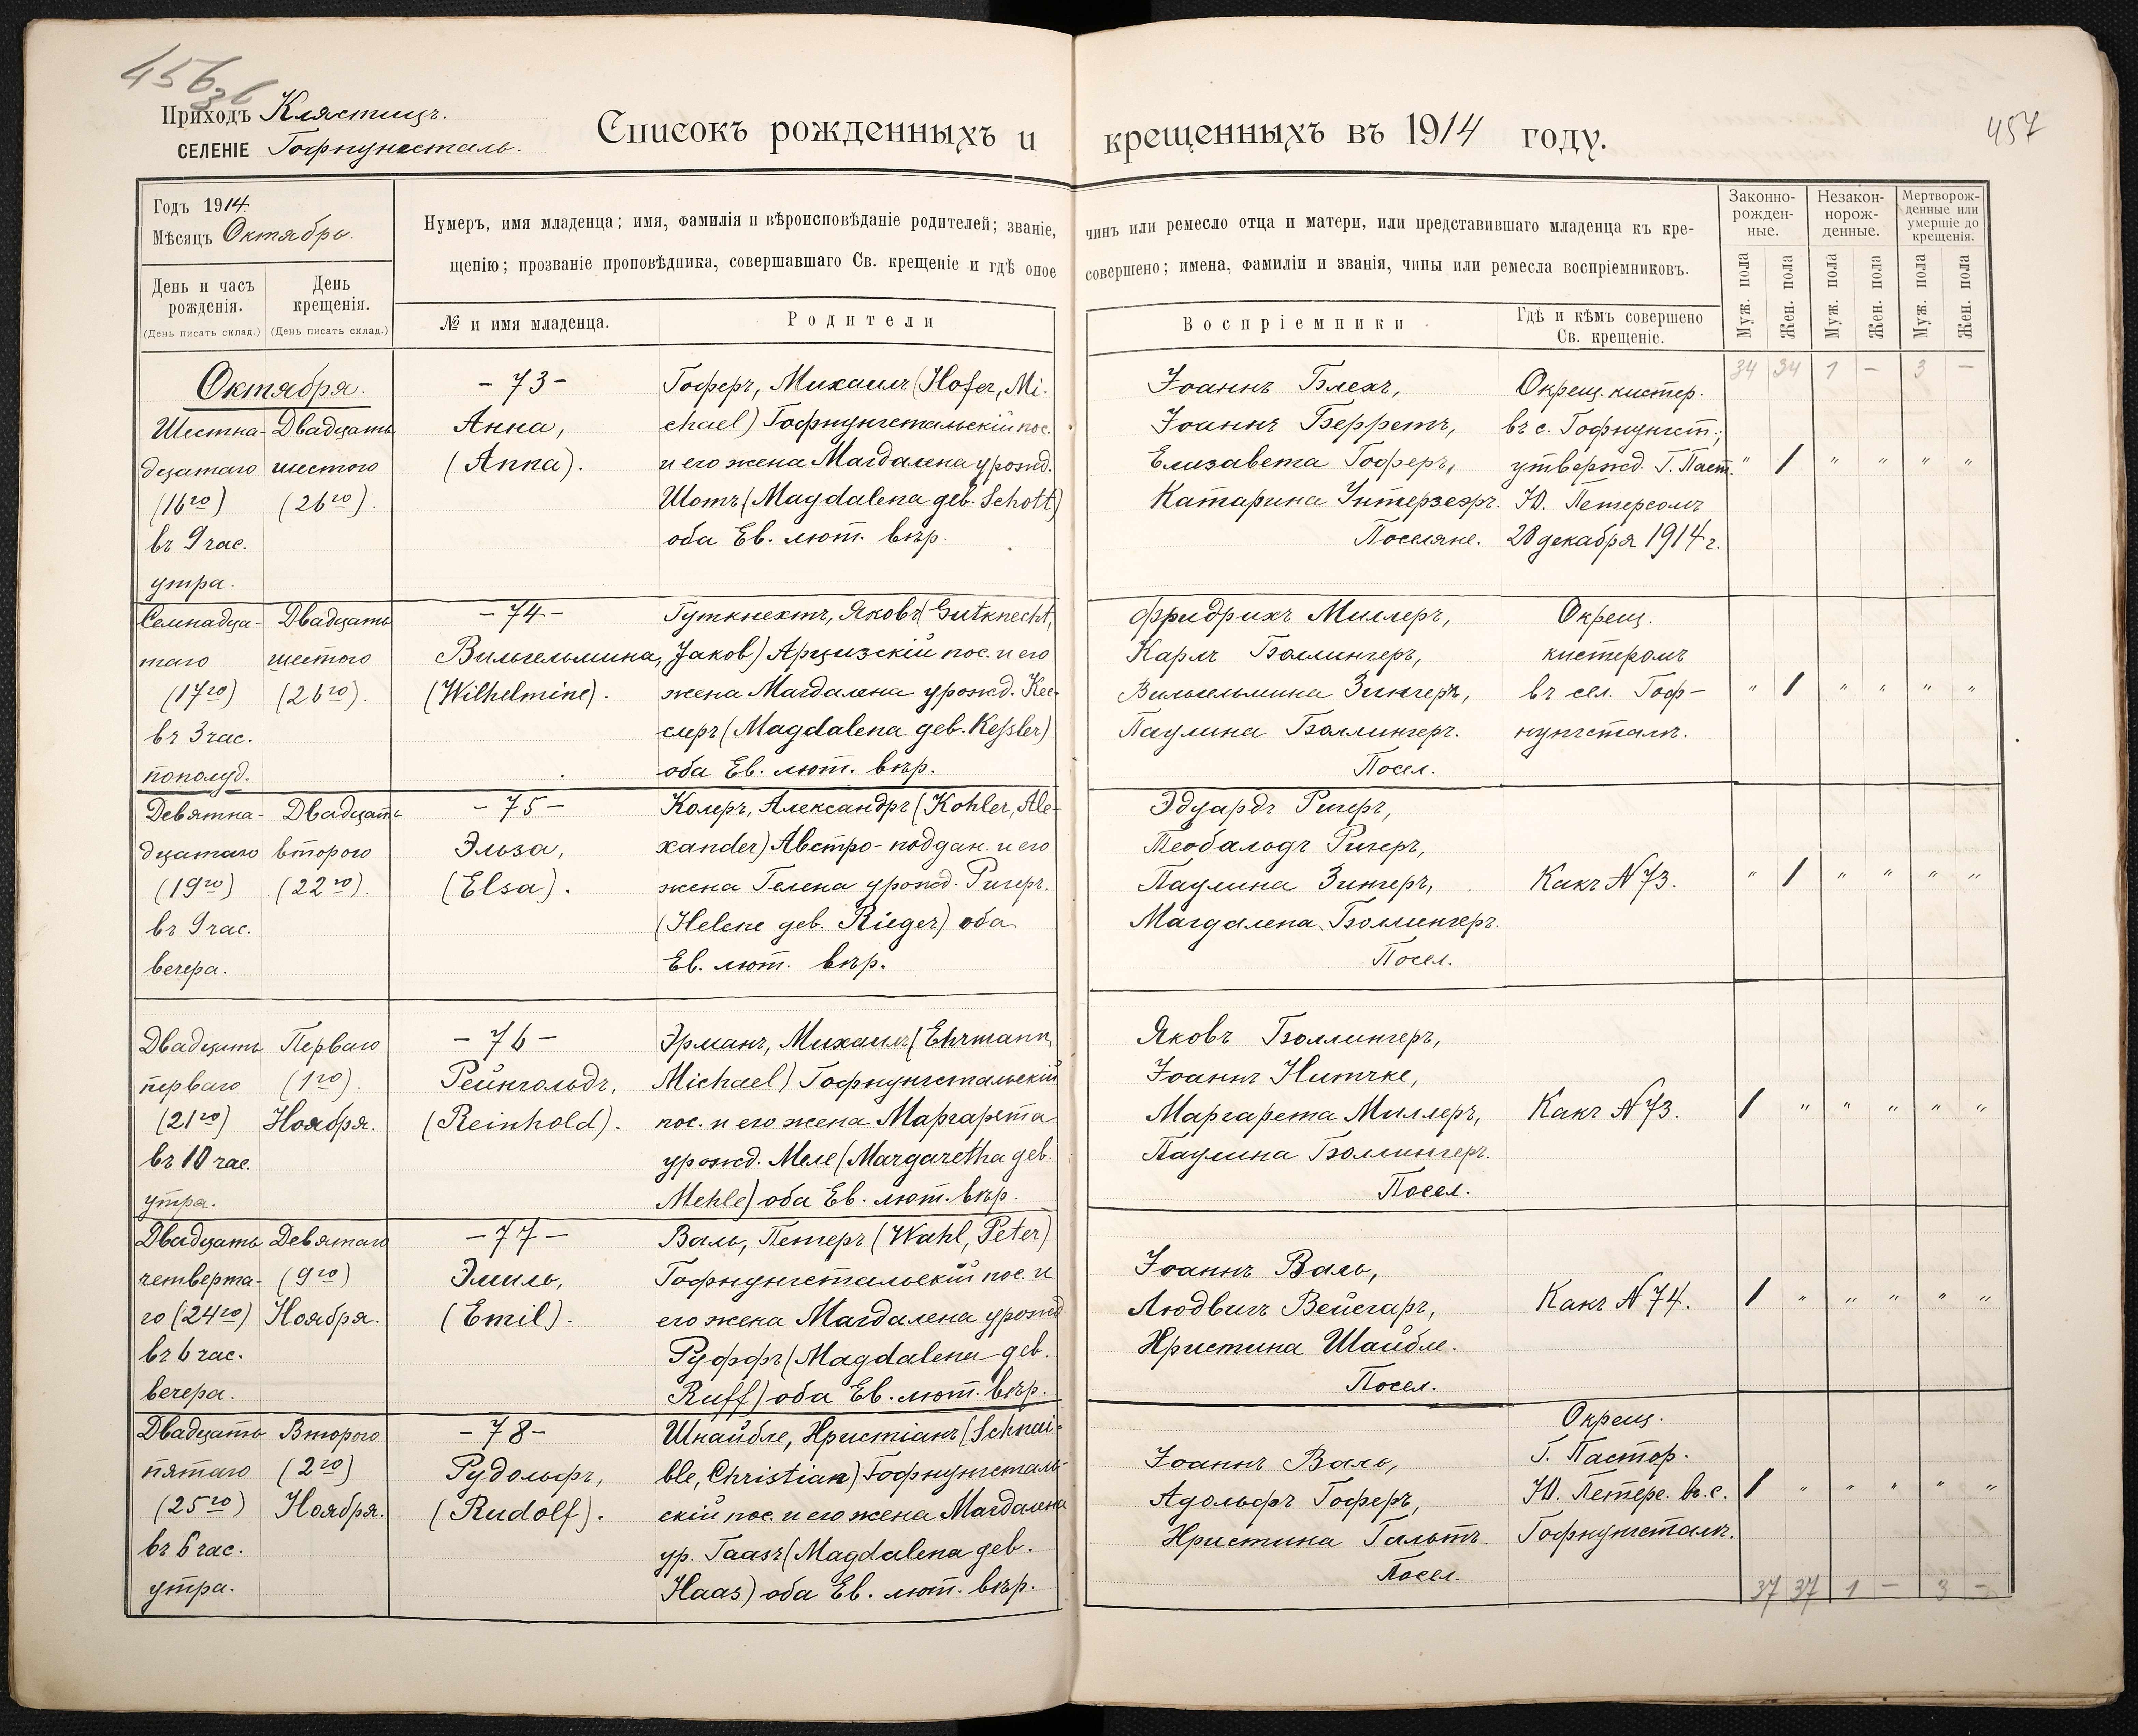 456
36
457
Приходъ Клястицъ.
СЕЛЕНІЕ Гофнунгсталь.
Списокъ рожденныхъ и крещенныхъ въ 1914 году.
Годъ 1914.
Мѣсяцъ Октябрь.
День и часъ рожденія.
(День писать склад.)
День крещенія.
(День писать склад.)
Нумеръ, имя младенца; имя, фамилія и вѣроисповѣданіе родителей; званіе, чинъ или ремесло отца и матери, или представившаго младенца къ кре-
щенію; прозваніе проповѣдника, совершавшаго Св. крещеніе и гдѣ оное совершено; имена, фамиліи и званія, чины или ремесла воспріемниковъ.
№ и имя младенца.
Родители
Воспріемники
Гдѣ и кѣмъ совершено
Св. крещеніе.
Законно-
рожден-
ные.
Незакон-
норож-
денные.
Мертворож-
денные или
умершіе до
крещенія.
Муж. пола
Жен. пола
Муж. пола
Жен. пола
Муж. пола
Жен. пола
34 34 1 — 3 —
Октября.
Шестна-
дцатаго
(16го)
въ 9 час.
утра.
Двадцать
шестого
(26го).
- 73 -
Анна,
(Anna).
Гоферъ, Михаилъ (Hofer, Mi-
chael) Гофнунгстальскій пос.
и его жена Магдалена урожд.
Шотъ (Magdalena geb. Schott)
оба Ев. лют. вѣр.
Іоаннъ Блехъ,
Іоаннъ Берретъ,
Елизавета Гоферъ,
Катарина Унтерзеэръ.
Поселяне.
Окрещ. кистер.
въ с. Гофнунгст.;
утвержд. Г. Паст.
Ю. Петерсомъ
28 декабря 1914 г.
" 1 " " " "
Семнадца-
таго
(17го)
въ 3 час.
пополуд.
Двадцать
шестого
(26го).
- 74 -
Вильгельмина,
(Wilhelmine).
Гуткнехтъ, Яковъ (Gutknecht,
Jakob) Арцизскій пос. и его
жена Магдалена урожд. Кес-
слеръ (Magdalena geb. Keßler)
оба Ев. лют. вѣр.
Фридрихъ Миллеръ,
Карлъ Боллингеръ,
Вильгельмина Зингеръ,
Паулина Боллингеръ.
Посел.
Окрещ.
кистеромъ
въ сел. Гоф-
нунгсталѣ.
" 1 " " " "
Девятна-
дцатаго
(19го)
въ 9 час.
вечера.
Двадцать
второго
(22го).
- 75 -
Эльза,
(Elsa).
Колеръ, Александръ (Kohler, Ale-
xander) Австро-поддан. и его
жена Гелена урожд. Ригеръ.
(Helene geb. Rieger) оба
Ев. лют. вѣр.
Эдуардъ Ригеръ,
Теобальдъ Ригеръ,
Паулина Зингеръ,
Магдалена Боллингеръ.
Посел.
Какъ N 73.
" 1 " " " "
Двадцать
перваго
(21го)
въ 10 час.
утра.
Перваго
(1го).
Ноября.
- 76 -
Рейнгольдъ,
(Reinhold).
Эрманъ, Михаилъ (Ehrmann,
Michael) Гофнунгстальскій
пос. и его жена Маргарета
урожд. Меле (Margaretha geb.
Mehle) оба Ев. лют. вѣр.
Яковъ Боллингеръ,
Іоаннъ Нитчке,
Маргарета Миллеръ,
Паулина Боллингеръ.
Посел.
Какъ N 73.
1 " " " " "
Двадцать
четверта-
го (24го)
въ 6 час.
вечера.
Девятаго
(9го)
Ноября.
- 77 -
Эмиль,
(Emil).
Валь, Петеръ (Wahl, Peter)
Гофнунгстальскій пос. и
его жена Магдалена урожд
Руффъ (Magdalena geb.
Ruff) оба Ев. лют. вѣр.
Іоаннъ Валь,
Людвигъ Вейсгаръ,
Христина Шайбле.
Посел.
Какъ N 74.
1 " " " " "
Двадцать
пятаго
(25го)
въ 6 час.
утра.
Второго
(2го)
Ноября.
- 78 -
Рудольфъ,
(Rudolf).
Шнайбле, Христіанъ (Schnai-
ble, Christian) Гофнунгсталь-
скій пос. и его жена Магдалена
ур. Гаазъ (Magdalena geb.
Haas) оба Ев. лют. вѣр.
Іоаннъ Валь,
Адольфъ Гоферъ,
Христина Гальтъ.
Посел.
Окрещ.
Г. Пастор.
Ю. Петерс. въ с.
Гофнунгсталѣ.
1 " " " " "
37 37 1 — 3 —